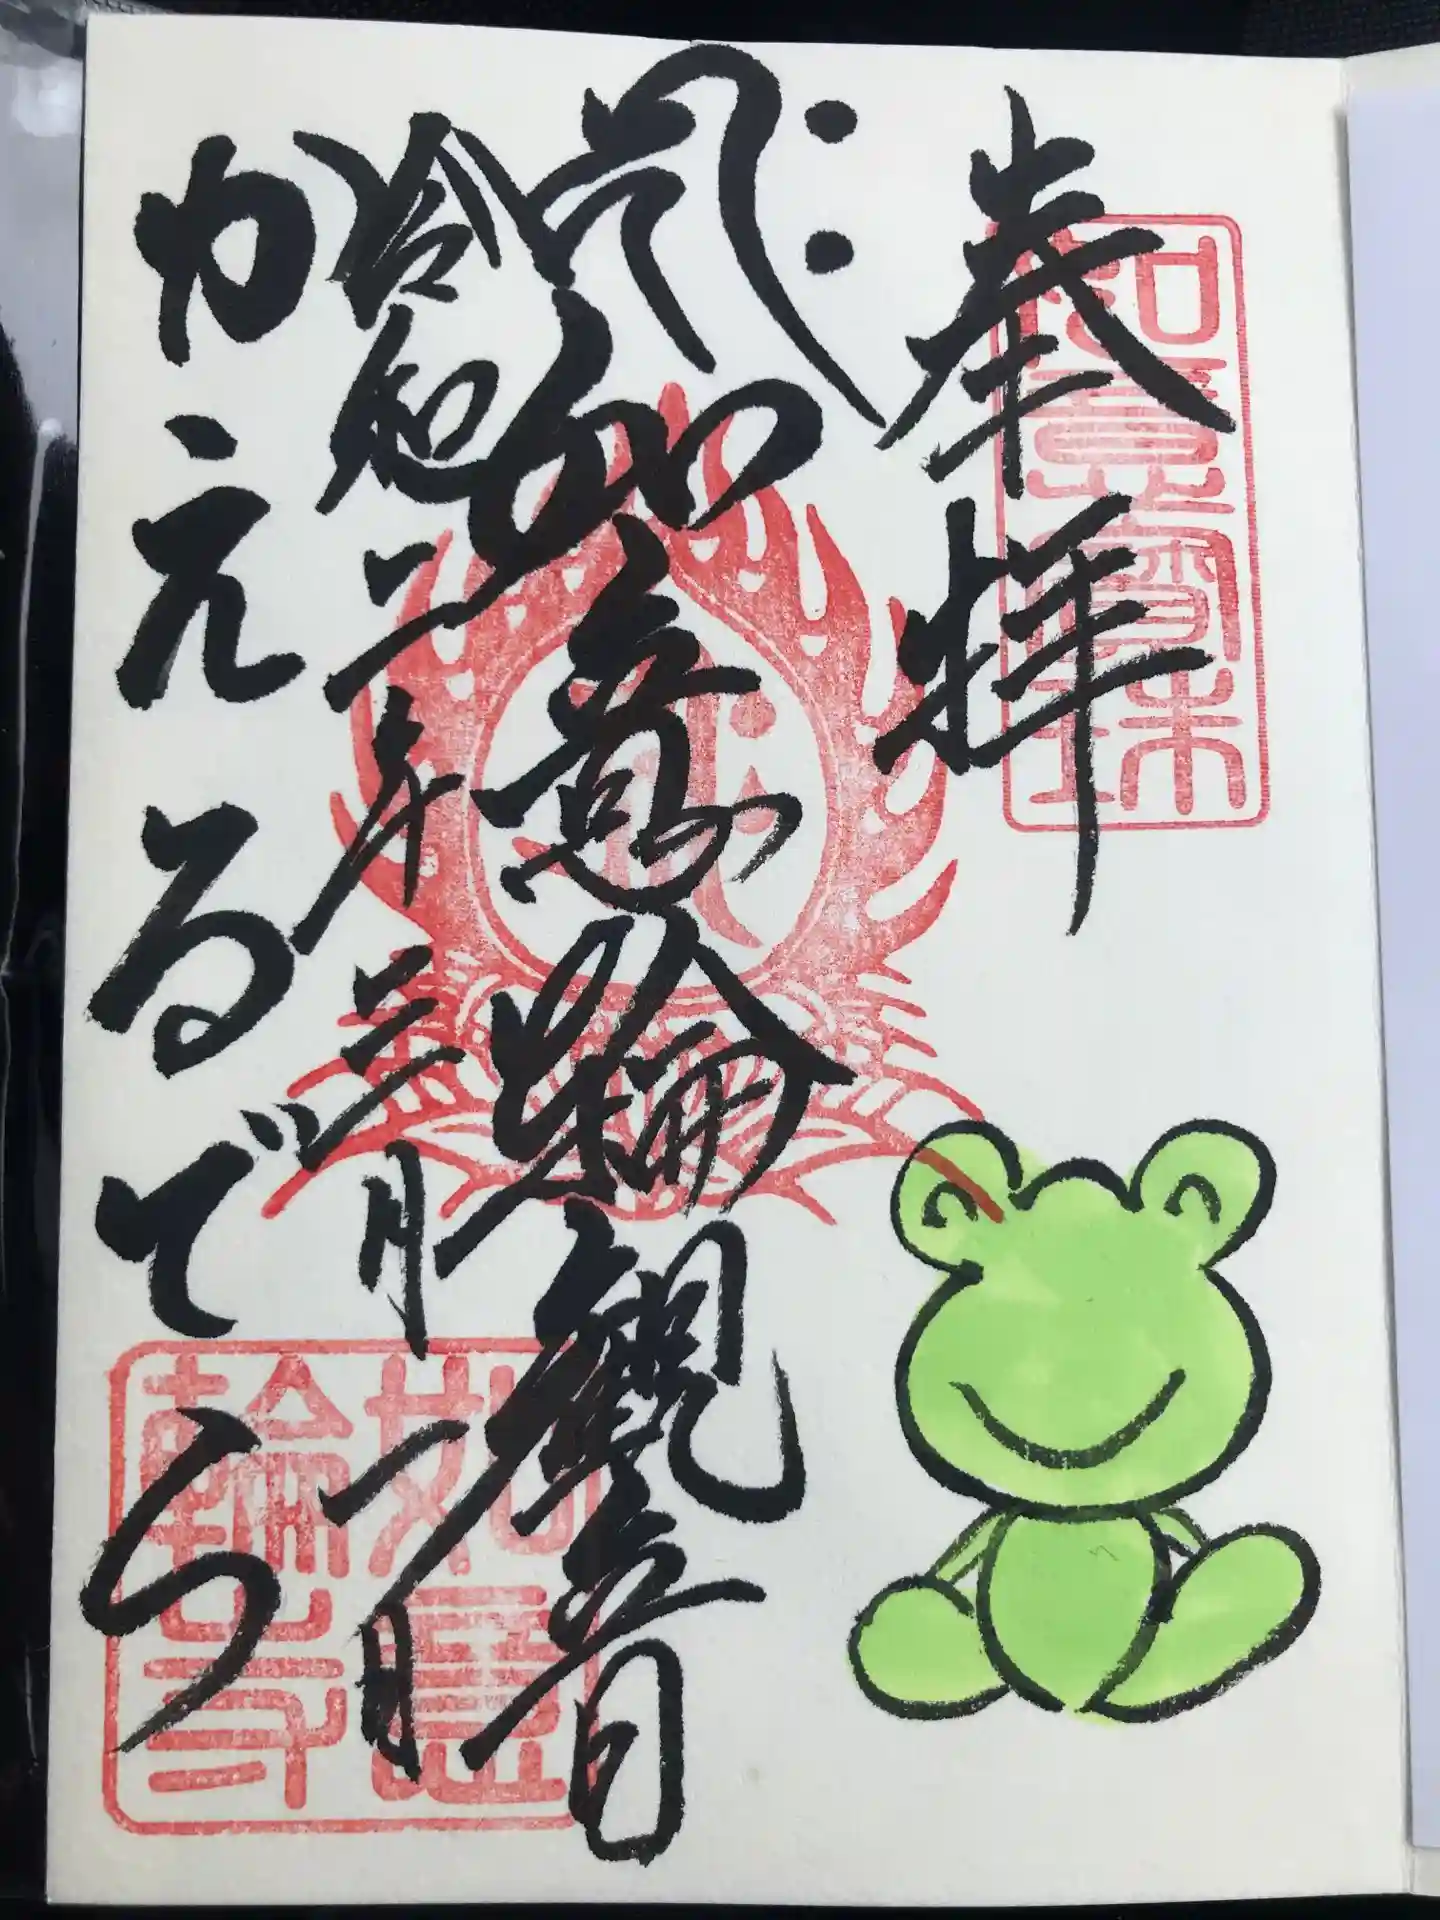 奉拝
如意寶珠
如意輪観音
令和二年三月一日
かえるでら
如意
輪寺